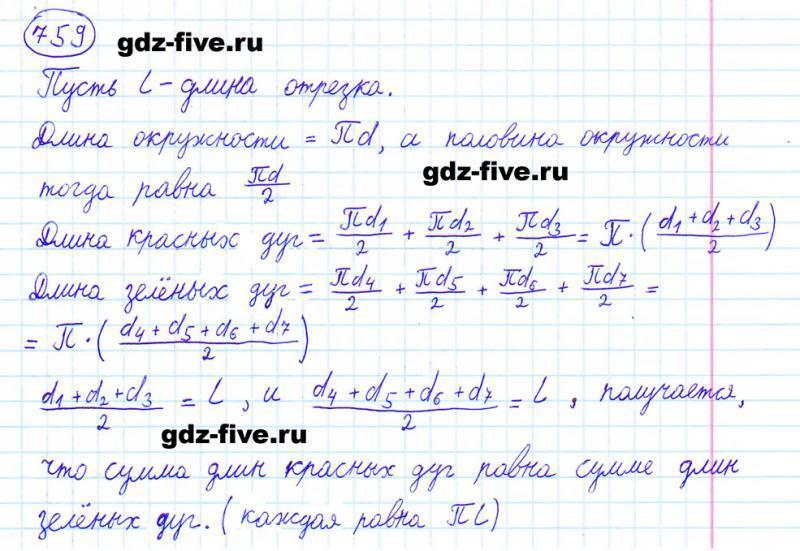 759 gdz-five.ru
Пусть L - длина отрезка.
Длина окружности = πd, а половина окружности
gdz-five.ru
тогда равна πd/2
Длина красных дуг = πd1/2 + πd2/2 + πd3/2 = π·(d1+d2+d3/2)
Длина зелёных дуг = πd4/2 + πd5/2 + πd6/2 + πd7/2 =
= π·(d4+d5+d6+d7/2)
d1+d2+d3/2 = L, и d4+d5+d6+d7/2 = L, получается,
gdz-five.ru
что сумма длин красных дуг равна сумме длин
зелёных дуг. (каждая равна πL)